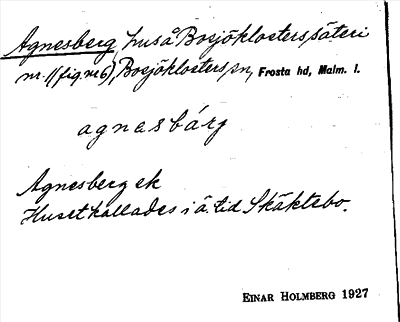 Agnesberg, hus å Bosjöklosters säteri
nr 1 (fig. nr 6), Bosjöklosters sn, Frosta hd, Malm. l.
agnasbárg
Agnesberg ek
Huset kallades i ä. tid Skäktebo.
EINAR HOLMBERG 1927